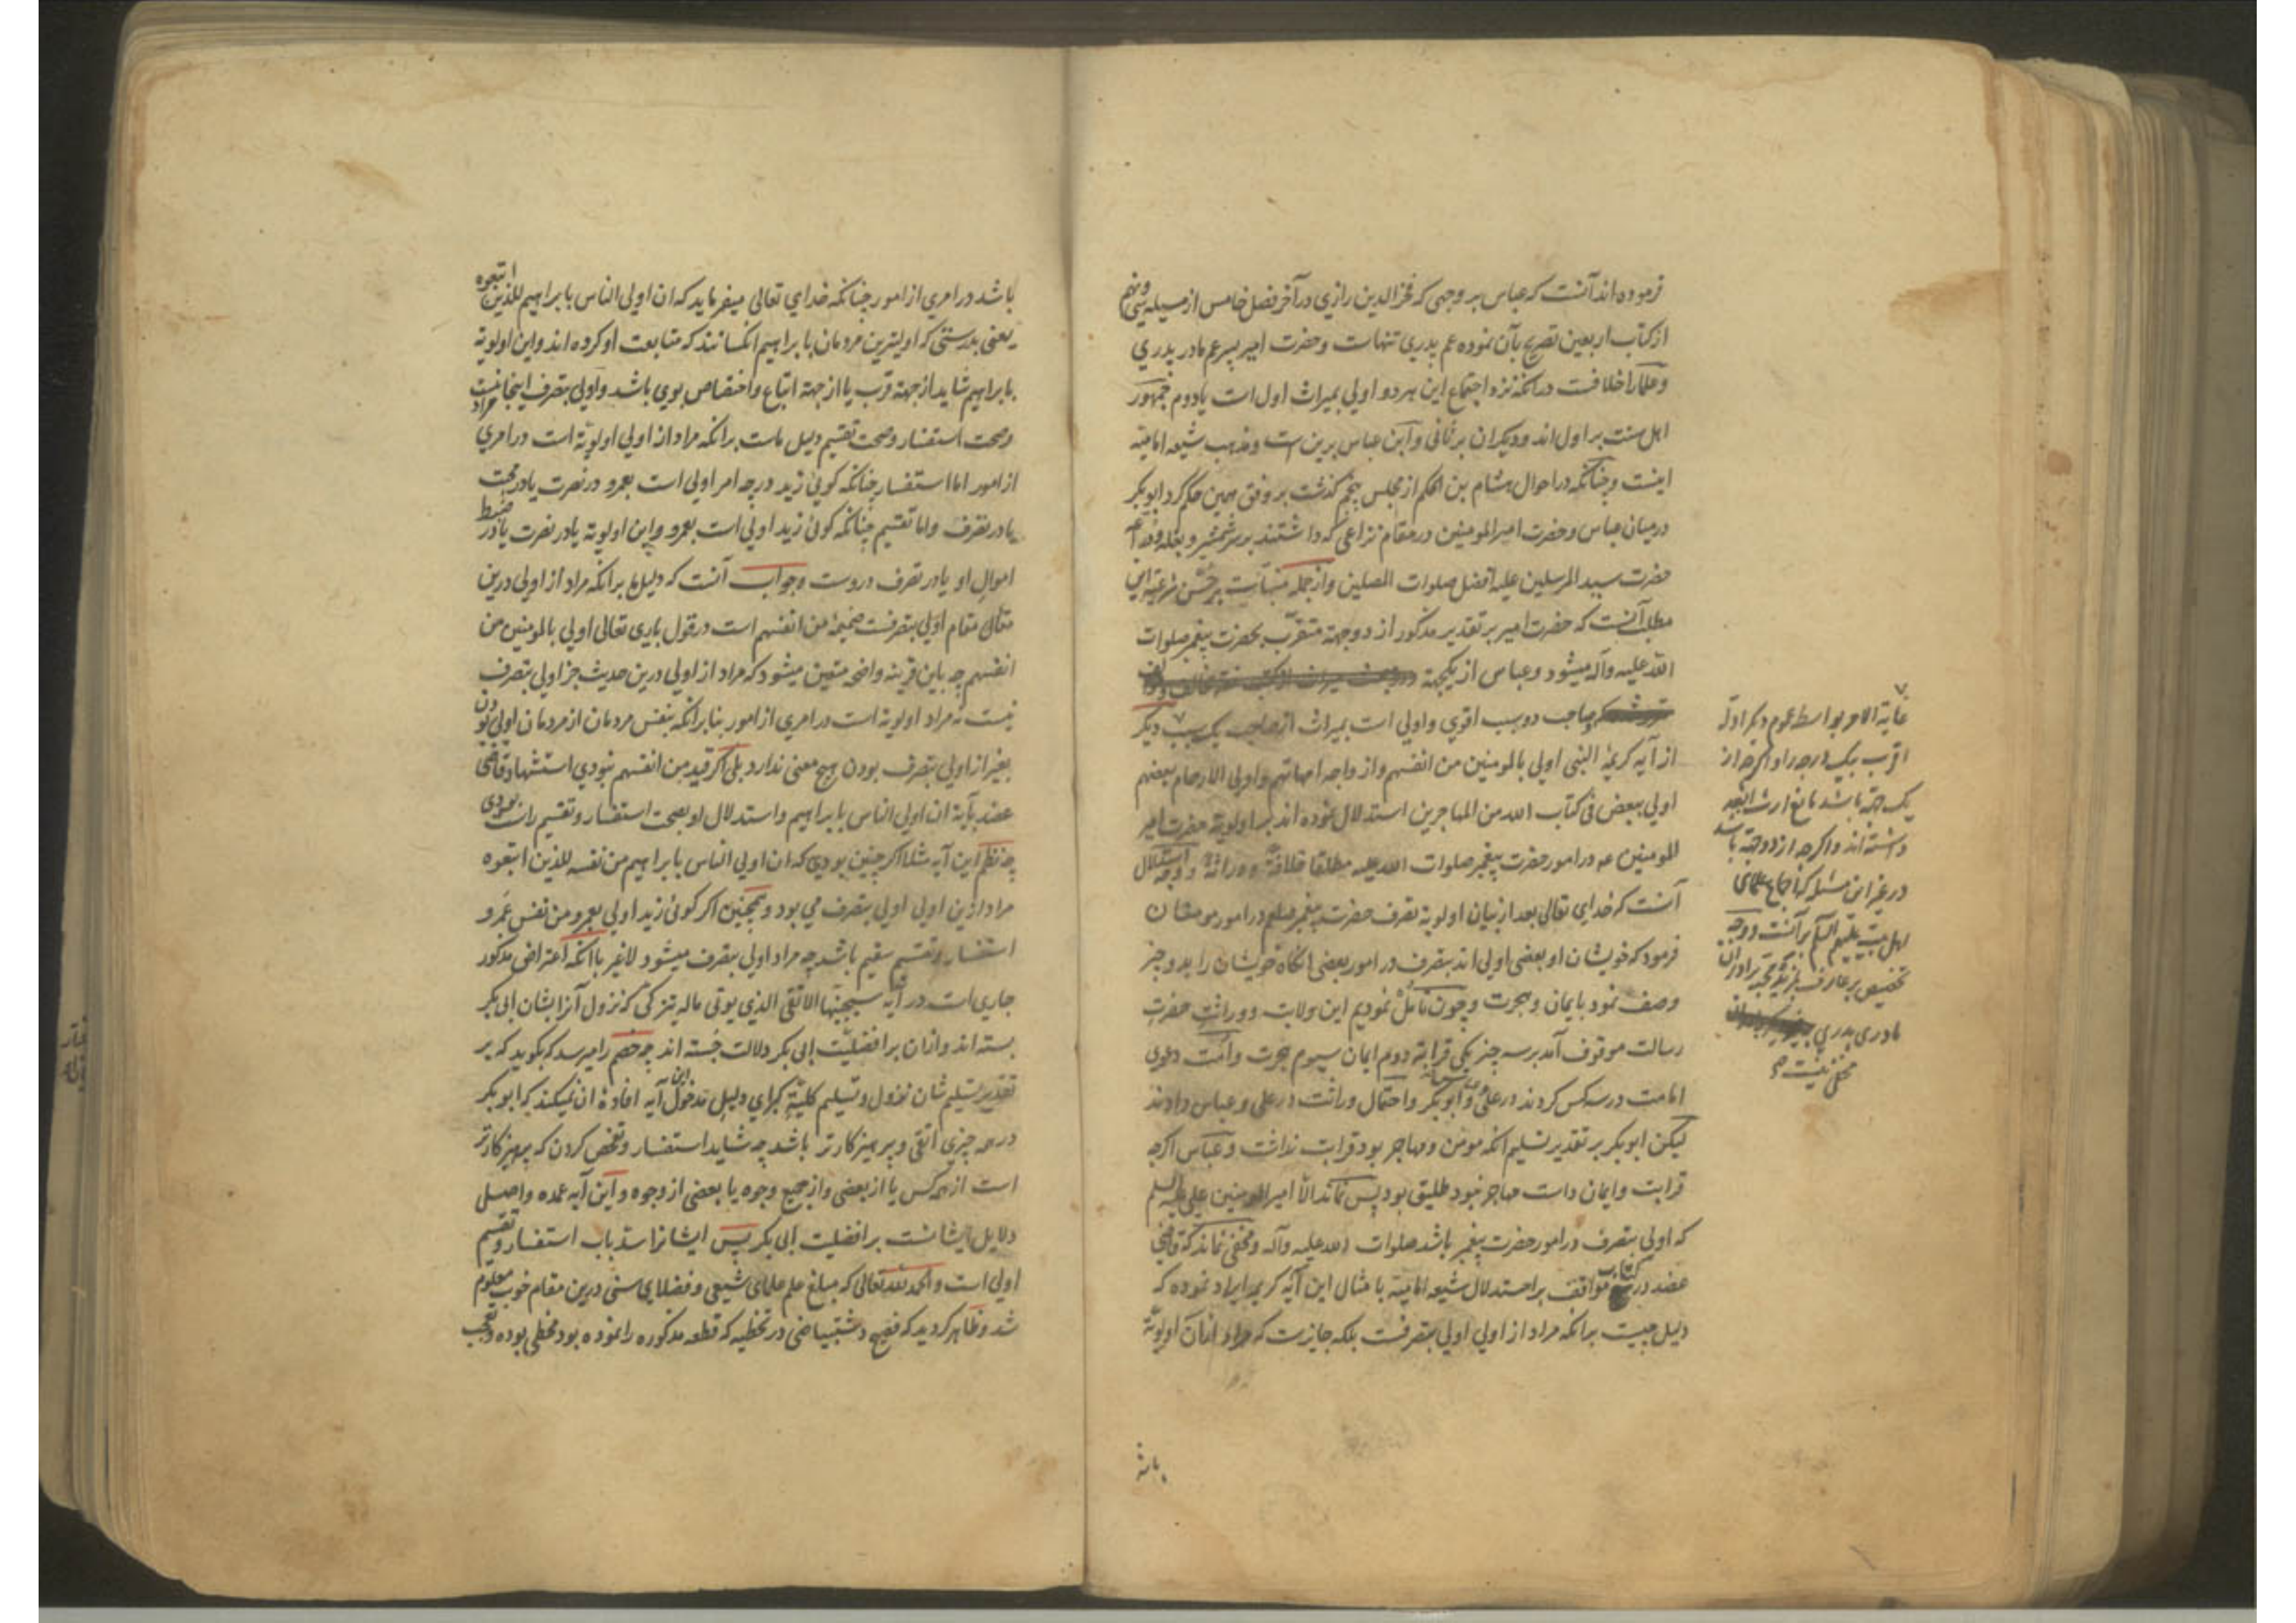 فرموده اند آنست که عباس بر وجهی که فخر الدین رازی در آخر فصل خامس از مسیله سی و نهم
از کتاب اربعین تصریح بآن نموده عم پدری تنهاست و حضرت امیر پسر عم مادر پدری
و علما را خلافست در آنکه نزد اجتماع این هر دو اولی بمیراث اول است یا دوم جمهور
اهل سنت بر اول اند و دیگران بر ثانی و ابن عباس برین است و مذهب شیعه امامیه
اینست و چنانکه در احوال هشام بن الحکم از مجلس پنجم گذشت بر وفق همین حکم کرد ابوبکر
در میان عباس و حضرت امیر المومنین در مقام نزاعی که داشتند بر سر شمشیر و بغله
حضرت سید المرسلین علیه افضل صلوات المصلین و از جمله
مطلب آنست که حضرت امیر بر تقدیر مذکور از دو جهة متقرب بحضرت پیغمبر صلوات
الله علیه و آله میشود و عباس از یکجهة
صاحب دو سبب اقوی و اولی است بمیراث از صاحب یک سبب دیگر
از آیه کریمه النبی اولی بالمومنین من انفسهم و ازواجه امهاتهم و اولی الارحام بعضهم
اولی ببعض فی کتاب الله من المهاجرین استدلال نموده اند بر اولویة حضرت امیر
المومنین ع در امور حضرت پیغمبر صلوات الله علیه مطلقا خلافة و وراثة و وجه استدلال
آنست که خدای تعالی بعد از بیان اولویة تصرف حضرت پیغمبر صلعم در امور مومنان
فرمود که خویشان او بعضی اولی اند بتصرف در امور بعضی آنگاه خویشان را بدو چیز
وصف نمود بایمان و هجرت و چون تأمل نمودیم این ولایت و وراثت حضرت
رسالت موقوف آمد بر سه چیز یکی قرابة دوم ایمان سیوم هجرت و امت دعوی
امامت در سه کس کردند در علی و عباس و ابوبکر و احتمال وراثت در علی و عباس دادند
لیکن ابوبکر بر تقدیر تسلیم آنکه مومن و مهاجر بود قرابت نداشت و عباس اگرچه
قرابت و ایمان داشت مهاجر نبود طلیق بود پس نماند الا امیر المومنین علی علیه السلم
که اولی بتصرف در امور حضرت پیغمبر باشد صلوات الله علیه و آله و مخفی نماند که قاضی
عضد در کتاب مواقف بر استدلال شیعه امامیه با مثال این آیه کریمه ایراد نموده که
دلیل چیست بر آنکه مراد از اولی اولی بتصرفست بلکه جایزست که مراد از آن اولویة
باشد
غایة الامر بواسط عموم دیگر ادله
اقرب بیک درجه را و اگرچه از
یک جهة باشد مانع ارث ابعد
داشته اند و اگرچه از دو جهة باشد
در غیر این مسئله که اجماع علمای
اهل بیت علیهم السلم بر آنست و وجه
تخصیص بر عارف
مادری پدری
مخفی نیست صح
باشد در امری از امور چنانکه خدای تعالی میفرماید که ان اولی الناس بابراهیم للذین اتبعوه
یعنی بدرستی که اولیترین مردمان بابراهیم آنکسانند که متابعت او کرده اند و این اولویة
بابراهیم شاید از جهة قرب یا از جهة اتباع و اختصاص بوی باشد و اولی بتصرف اینجا نیست مراد
و صحت استفسار و صحت تقسیم دلیل ماست بر آنکه مراد از اولی اولویة است در امری
از امور اما استفسار چنانکه گوئی زید در چه امر اولی است بعمرو در نصرت یا در محبت
یا در تصرف و اما تقسیم چنانکه گوئی زید اولی است بعمرو و این اولویة یا در نصرت یا در ضبط
اموال او یا در تصرف دروست و جواب آنست که دلیل ما بر آنکه مراد از اولی درین
مقام اولی بتصرفست ضمیمه من انفسهم است در قول باری تعالی اولی بالمومنین من
انفسهم چه باین قرینه واضحه متعین میشود که مراد از اولی درین حدیث جز اولی بتصرف
نیست نه مراد اولویة است در امری از امور بنابر آنکه بنفس مردمان از مردمان اولی بودن
بغیر از اولی بتصرف بودن هیچ معنی ندارد بلی اگر قید من انفسهم نبودی استشهاد قاضی
عضد بآیة ان اولی الناس بابراهیم و استدلال او بصحت استفسار و تقسیم راست بودی
چه نظم این آیه مثلا اگر چنین بودی که ان اولی الناس بابراهیم من نفسه للذین اتبعوه
مراد ازین اولی اولی بتصرف می بود و همچنین اگر گوئی زید اولی بعمرو من نفس عمرو
استفسار و تقسیم سقیم باشد چه مراد اولی بتصرف میشود لا غیر با آنکه اعتراض مذکور
جاری است در آیه سیجنبها الاتقی الذی یوتی ماله یتزکی که نزول آنرا بشان ابی بکر
بسته اند و از آن بر افضلیت ابی بکر دلالت جسته اند چه خصم را میرسد که بگوید که بر
تقدیر تسلیم شان نزول و تسلیم کلیة کبرای دلیل مدخول این آیه افاده آن نمیکند که ابوبکر
در همه چیزی اتقی و پرهیزکارتر باشد چه شاید استفسار و تفحص کردن که پرهیزکارتر
است از همه کس یا از بعضی و از جمیع وجوه یا بعضی از وجوه و این آیه عمده و اصل
دلایل ایشانست بر افضلیت ابی بکر پس ایشانرا سد باب استفسار و تقسیم
اولی است و الحمد لله تعالی که مبلغ علم علمای شیعی و فضلای سنی درین مقام خوب معلوم
شد و ظاهر کردید که فصیح دشتبیاضی در تخطیه که قطعه مذکوره را نموده بود مخطی بوده و تعجب